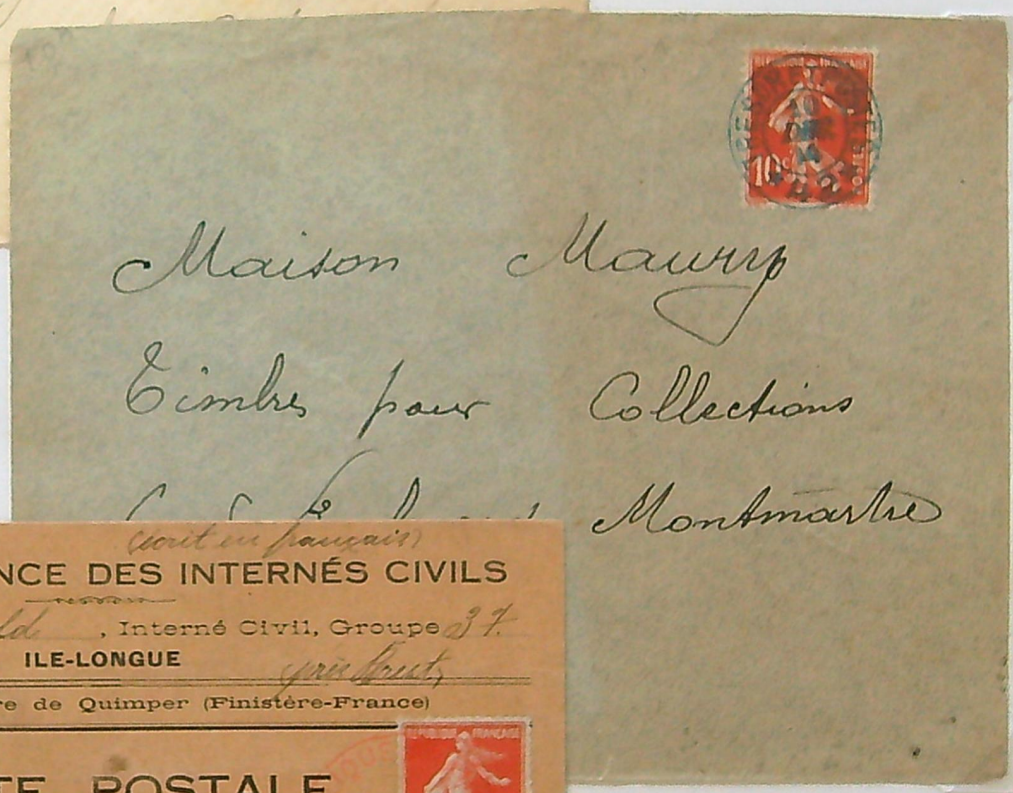 RÉPUBLIQUE FRANÇAISE
10
DEC
14
10c
Maison Maury
Timbres pour Collections
Montmartre
écrit en français
NCE DES INTERNÉS CIVILS
ld, Interné Civil, Groupe 37.
ILE-LONGUE près Brest,
re de Quimper (Finistère-France)
RÉPUBLIQUE FRANÇAISE
TE POSTALE